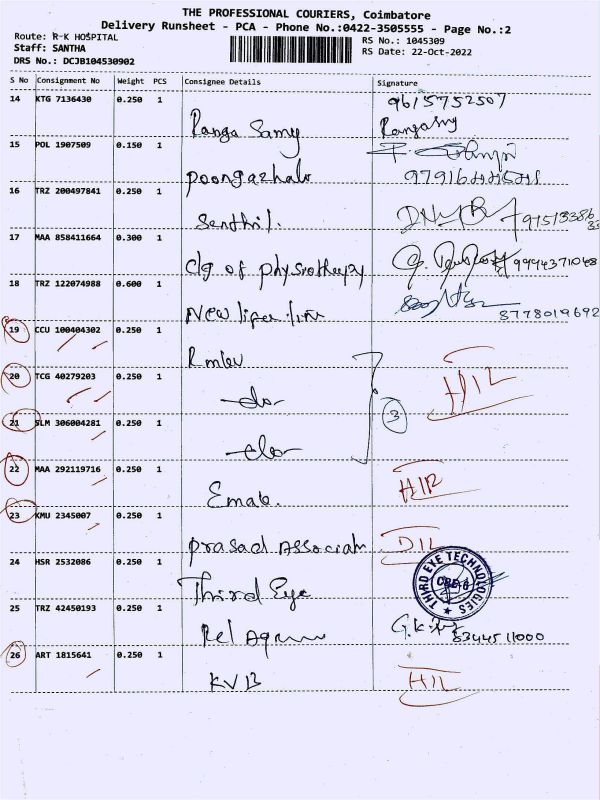 THE PROFESSIONAL COURIERS, Coimbatore
Delivery Runsheet - PCA - Phone No.:0422-3505555 - Page No.:2
Route: R-K HOSPITAL
RS No.: 1045309
Staff: SANTHA
RS Date: 22-Oct-2022
DRS No.: DCJB104530902
S No Consignment No Weight PCS Consignee Details Signature
14 KTG 7136430 0.250 1 Ranga Samy 9615752507
Rangasamy
15 POL 1907509 0.150 1 Poongazhali
16 TRZ 200497841 0.250 1 Senthil.
17 MAA 858411664 0.300 1 clg of physiotherapy 9994371048
18 TRZ 122074988 0.600 1 New 8778019692
19 CCU 100404302 0.250 1
20 TCG 40279203 0.250 1 -do- 3
21 SLM 306004281 0.250 1 -do-
22 MAA 292119716 0.250 1
23 KMU 2345007 0.250 1 Prasad Associate
24 HSR 2532086 0.250 1 Third Eye THIRD EYE TECHNOLOGIES CBE-6
25 TRZ 42450193 0.250 1 8344511000
26 ART 1815641 0.250 1 KVB